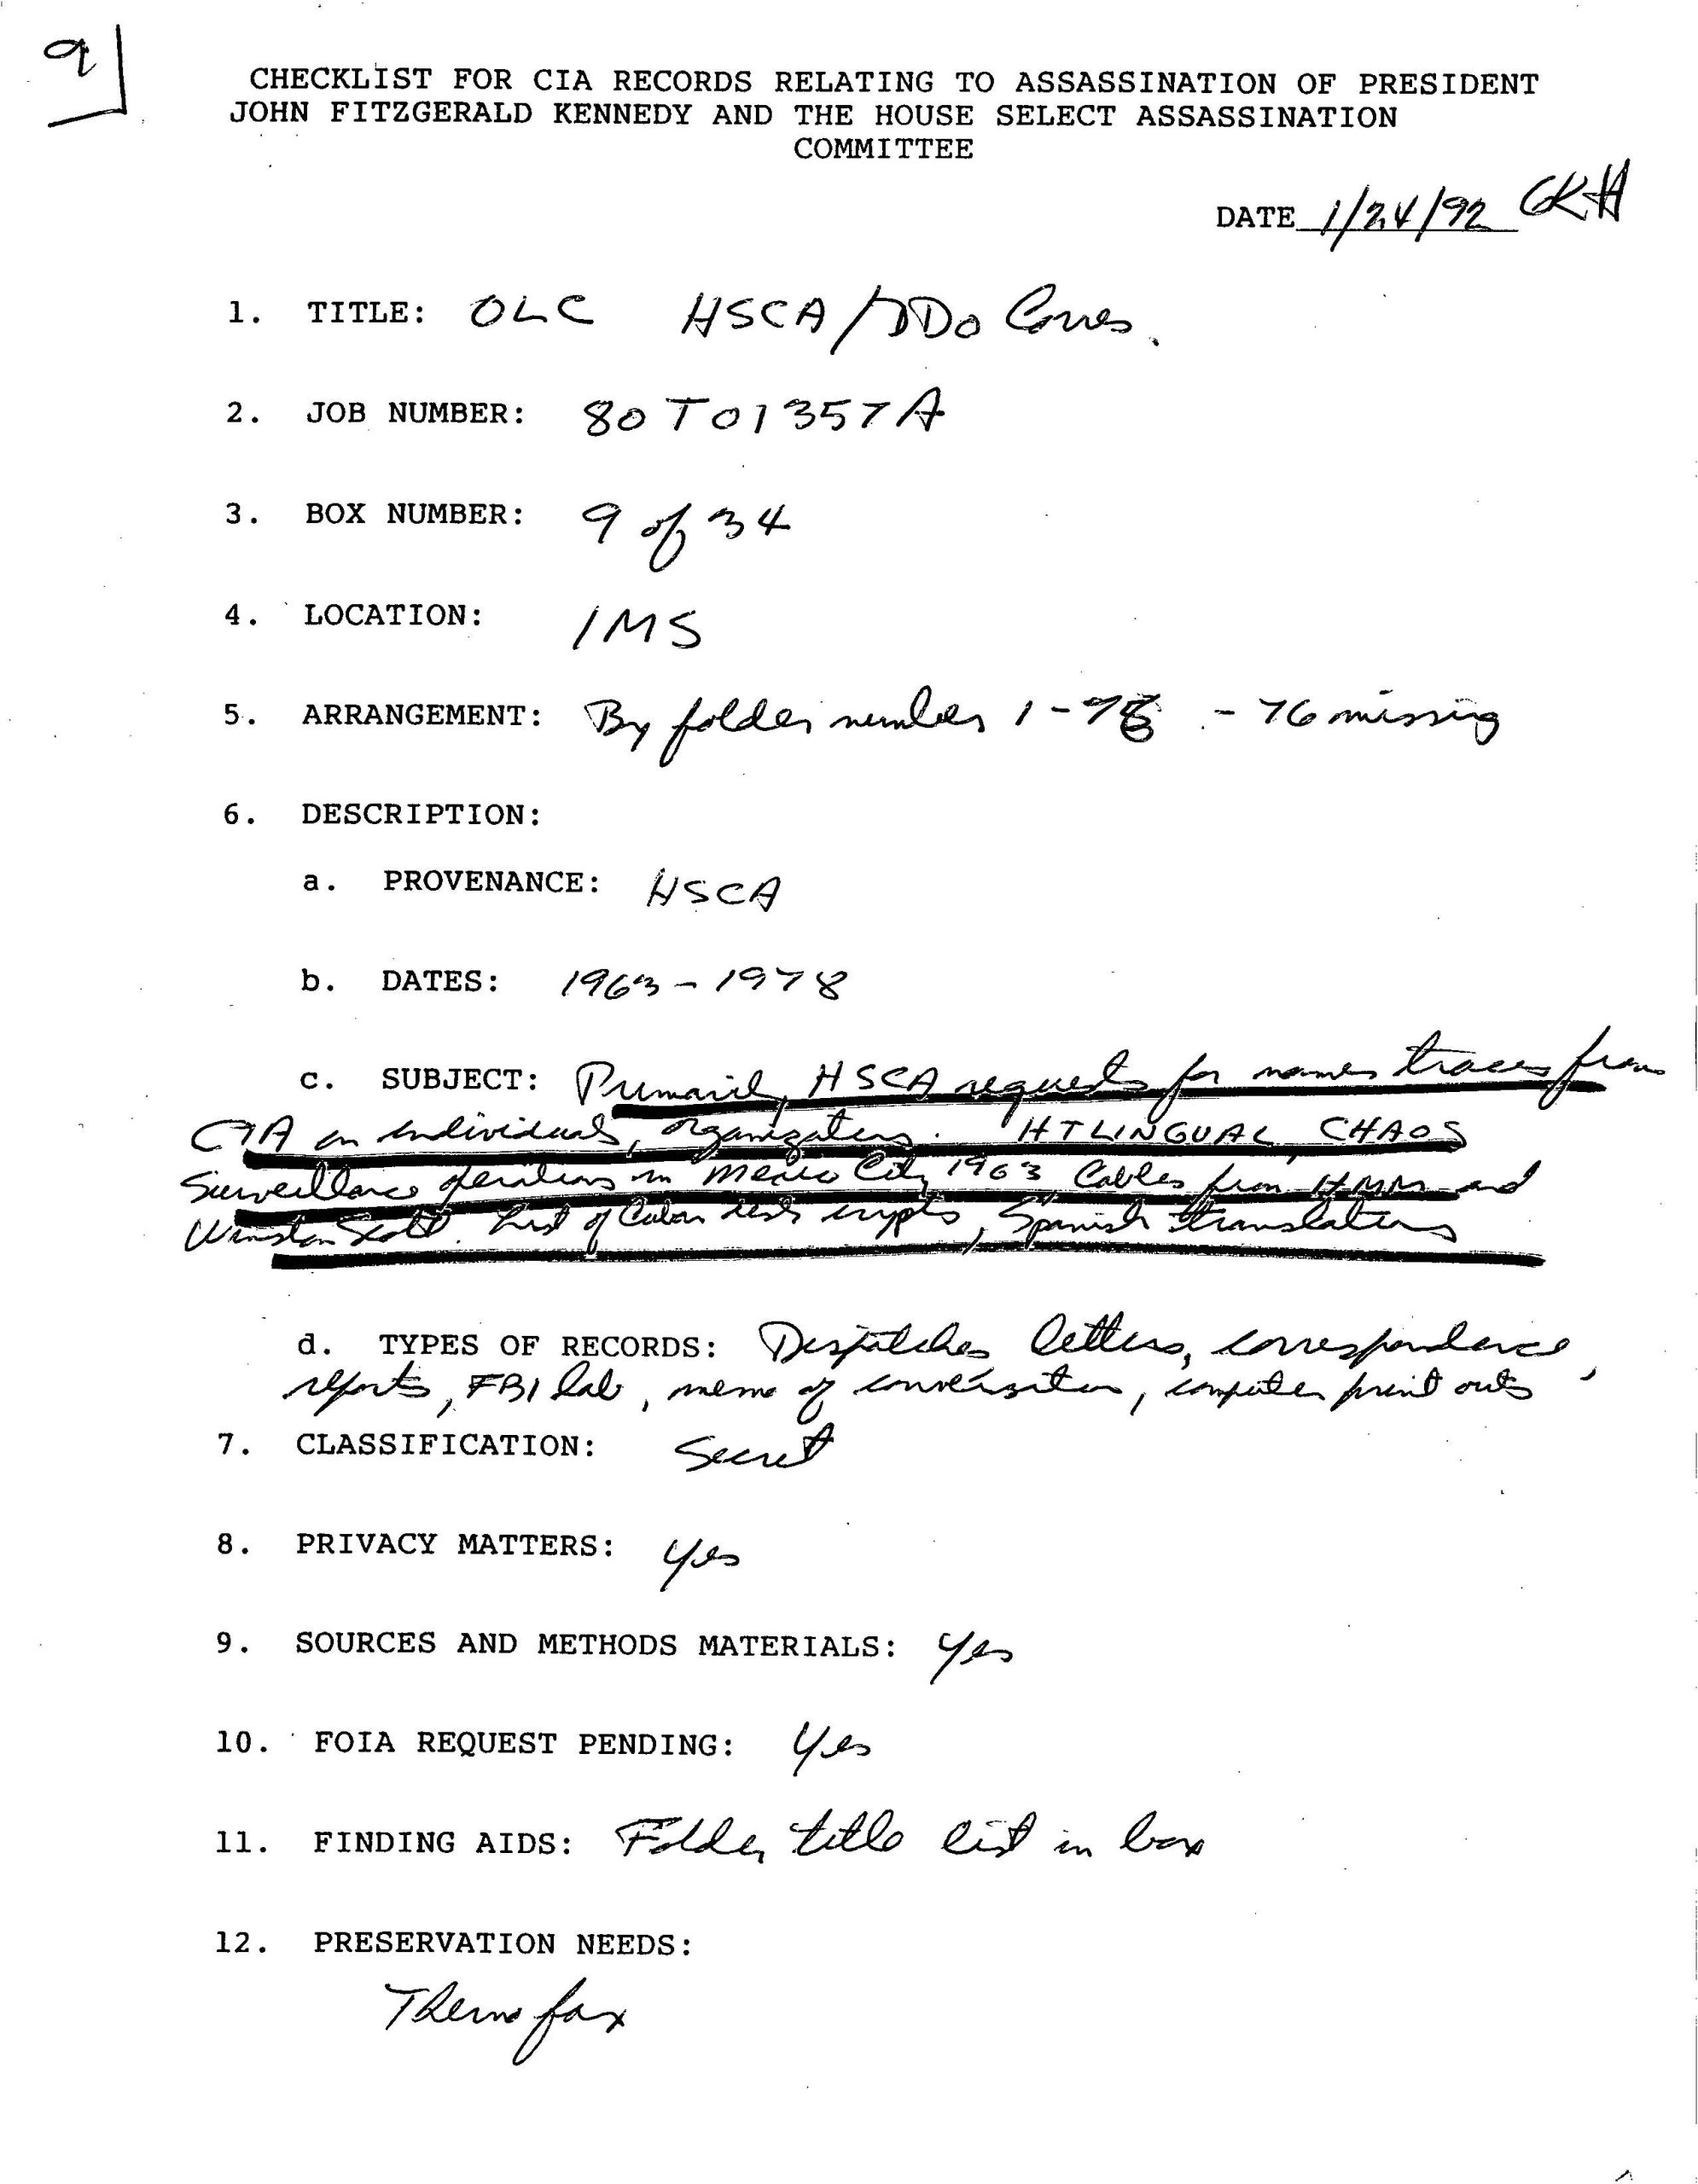 9
CHECKLIST FOR CIA RECORDS RELATING TO ASSASSINATION OF PRESIDENT
JOHN FITZGERALD KENNEDY AND THE HOUSE SELECT ASSASSINATION
COMMITTEE
DATE 1/24/92 GKH
1. TITLE: OLC HSCA/DDO Corres.
2. JOB NUMBER: 80T01357A
3. BOX NUMBER: 9 of 34
4. LOCATION: IMS
5. ARRANGEMENT: By folder number 1 - - 76 missing
6. DESCRIPTION:
a. PROVENANCE: HSCA
b. DATES: 1963 - 1978
c. SUBJECT: Primarily HSCA requests for names traces from
CIA on individuals, organizations. HTLINGUAL, CHAOS
Surveillance operations in Mexico City 1963 Cables from and
Winston Scott. List of Cuban desk crypts, Spanish translations
d. TYPES OF RECORDS: Dispatches letters, correspondence,
reports, FBI lab, memo of conversation, computer print outs
7. CLASSIFICATION: Secret
8. PRIVACY MATTERS: yes
9. SOURCES AND METHODS MATERIALS: yes
10. FOIA REQUEST PENDING: yes
11. FINDING AIDS: Folder title list in box
12. PRESERVATION NEEDS:
Thermofax